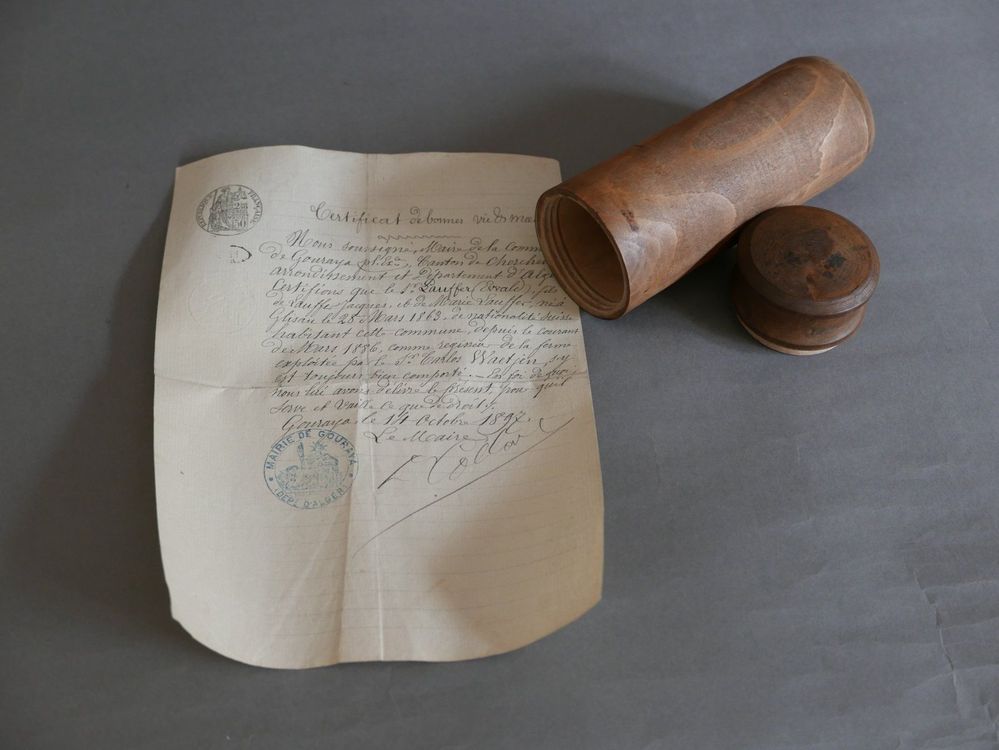 RÉPUBLIQUE FRANÇAISE
Certificat de bonnes vie et mœ
Nous soussigné, Maire de la Comm
de Gouraya, Canton de Cherchel
arrondissement et Département d'Alg
Certifions que le Sr Lauffer
de Lauffer Jacques, et de Marie Lauffer, né à
le 25 Mars 1863 de nationalité Suisse
habitant cette commune, depuis le courant
de Mars 1886, comme de la ferme
exploitée par le Sr Carlos Waetjen, s'y
est toujours bien comporté. — En foi de quoi
nous lui avons délivré le présent, pour qu'il
serve et vaille ce que de droit.
Gouraya le 14 Octobre 1897.
Le Maire
MAIRIE DE GOURAYA
DEPT D'ALGER